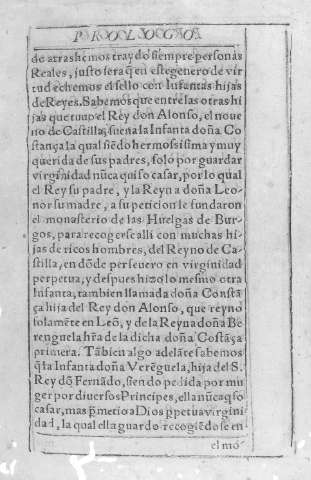 PROLOGO
de atras hemos traydo siempre personas
Reales, justo sera q̃ en este genero de vir
tud echemos el sello con Infantas hijas
de Reyes. Sabemos que entre las otras hi
jas que tuuo el Rey don Alonso, el noue
no de Castilla, fue na la Infanta doña Co
stança la qual siẽdo hermosissima y muy
querida de sus padres, solo por guardar
virginidad nũca quiso casar, por lo qual
el Rey su padre, y la Reyna doña Leo-
nor su madre, a su peticion le fundaron
el monasterio de las Huelgas de Bur-
gos, para recogerse alli con muchas hi-
jas de ricos hombres, del Reyno de Ca-
stilla, en dõde perseuero en virginidad
perpetua, y despues hizo lo mesmo otra
Infanta, tambien llamada doña Constã
ça hija del Rey don Alonso, que reyno
solamẽte en Leõ, y de la Reyna doña Be
renguela hr̃a de la dicha doña Costãça
primera. Tãbien algo adelãte sabemos
q̃ la Infanta doña Verẽguela, hija del S.
Rey dõ Fernãdo, siendo pedida por mu
ger por diuersos Principes, ella nũca q̃so
casar, mas p̃metio a Dios p̱petua virgini
dad, la qual ella guardo recogiẽdose en
el mo-